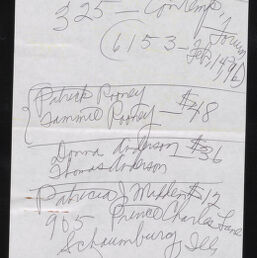 325 - Contemp.
Forum
(6153 -
Patrick Rooney
Tammie Rooney - $48
Donna Anderson $36
Thomas Anderson
Patricia J $12
905 Prince Charles Lane
Schaumburg, Ill